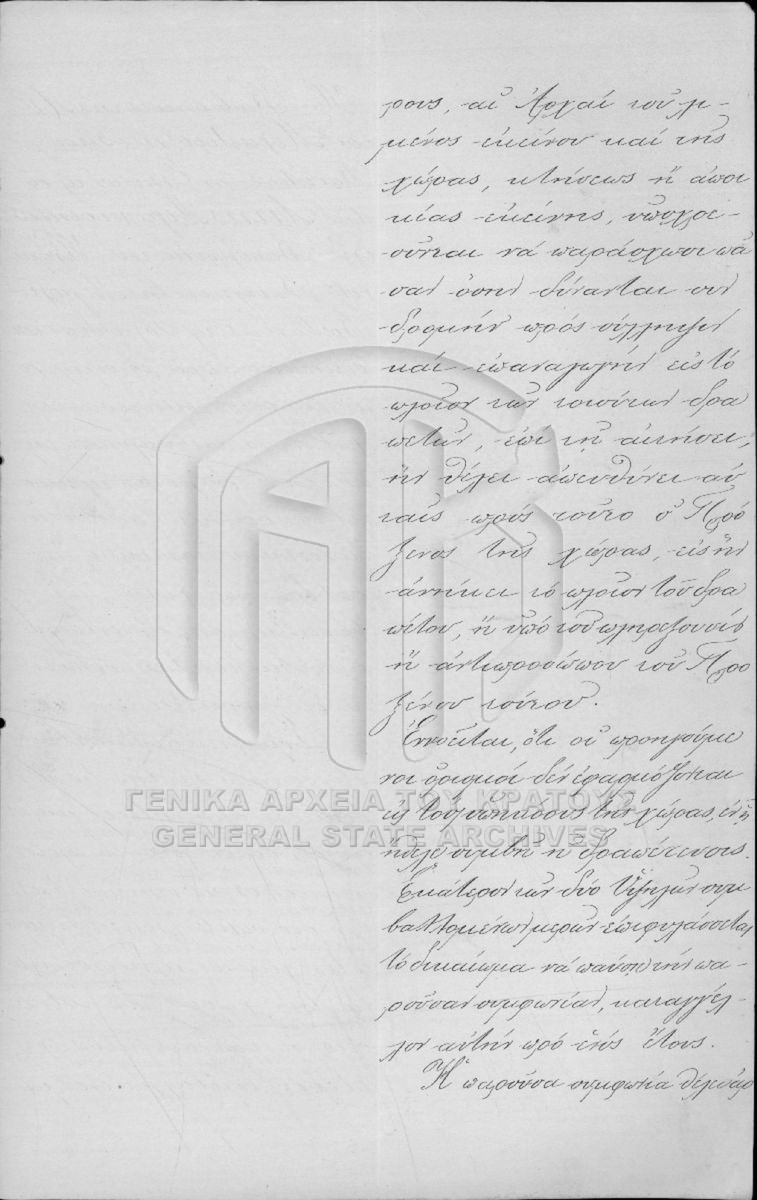 ρους, αἱ Ἀρχαὶ τοῦ λι-
μένος ἐκείνου καὶ τῆς
χώρας, κτήσεως ἢ ἀποι
κίας ἐκείνης, ὑποχρε-
οῦνται νὰ παράσχωσι πᾶ
σαν ὅσην δύνανται συν
δρομὴν πρὸς σύλληψιν
καὶ ἐπαναγωγὴν εἰς τὸ
πλοῖον τῶν τοιούτων δρα
πετῶν, ἐπὶ τῇ αἰτήσει,
ἣν θέλει ἀπευθύνει αὐ
ταῖς πρὸς τοῦτο ὁ Πρό
ξενος τῆς χώρας, εἰς ἣν
ἀνήκει τὸ πλοῖον τοῦ δρα
πέτου, ἢ ὑπὸ τοῦ πληρεξουσίου
ἢ ἀντιπροσώπου τοῦ Προ
ξένου τούτου.
Ἐννοεῖται, ὅτι οἱ προηγούμε
νοι ὁρισμοὶ δὲν ἐφαρμόζονται
εἰς τοὺς ὑπηκόους τῆς χώρας, ἐν ᾗ
ἤθελε συμβῆ ἡ δραπέτευσις.
Ἑκάτερον τῶν δύο Ὑψηλῶν συμ
βαλλομένων μερῶν ἐπιφυλάσσεται
τὸ δικαίωμα νὰ παύσῃ τὴν πα-
ροῦσαν συμφωνίαν, καταγγέλ-
λον αὐτὴν πρὸ ἑνὸς ἔτους.
Ἡ παροῦσα συμφωνία θέλει
ΓΕΝΙΚΑ ΑΡΧΕΙΑ ΤΟΥ ΚΡΑΤΟΥΣ
GENERAL STATE ARCHIVES